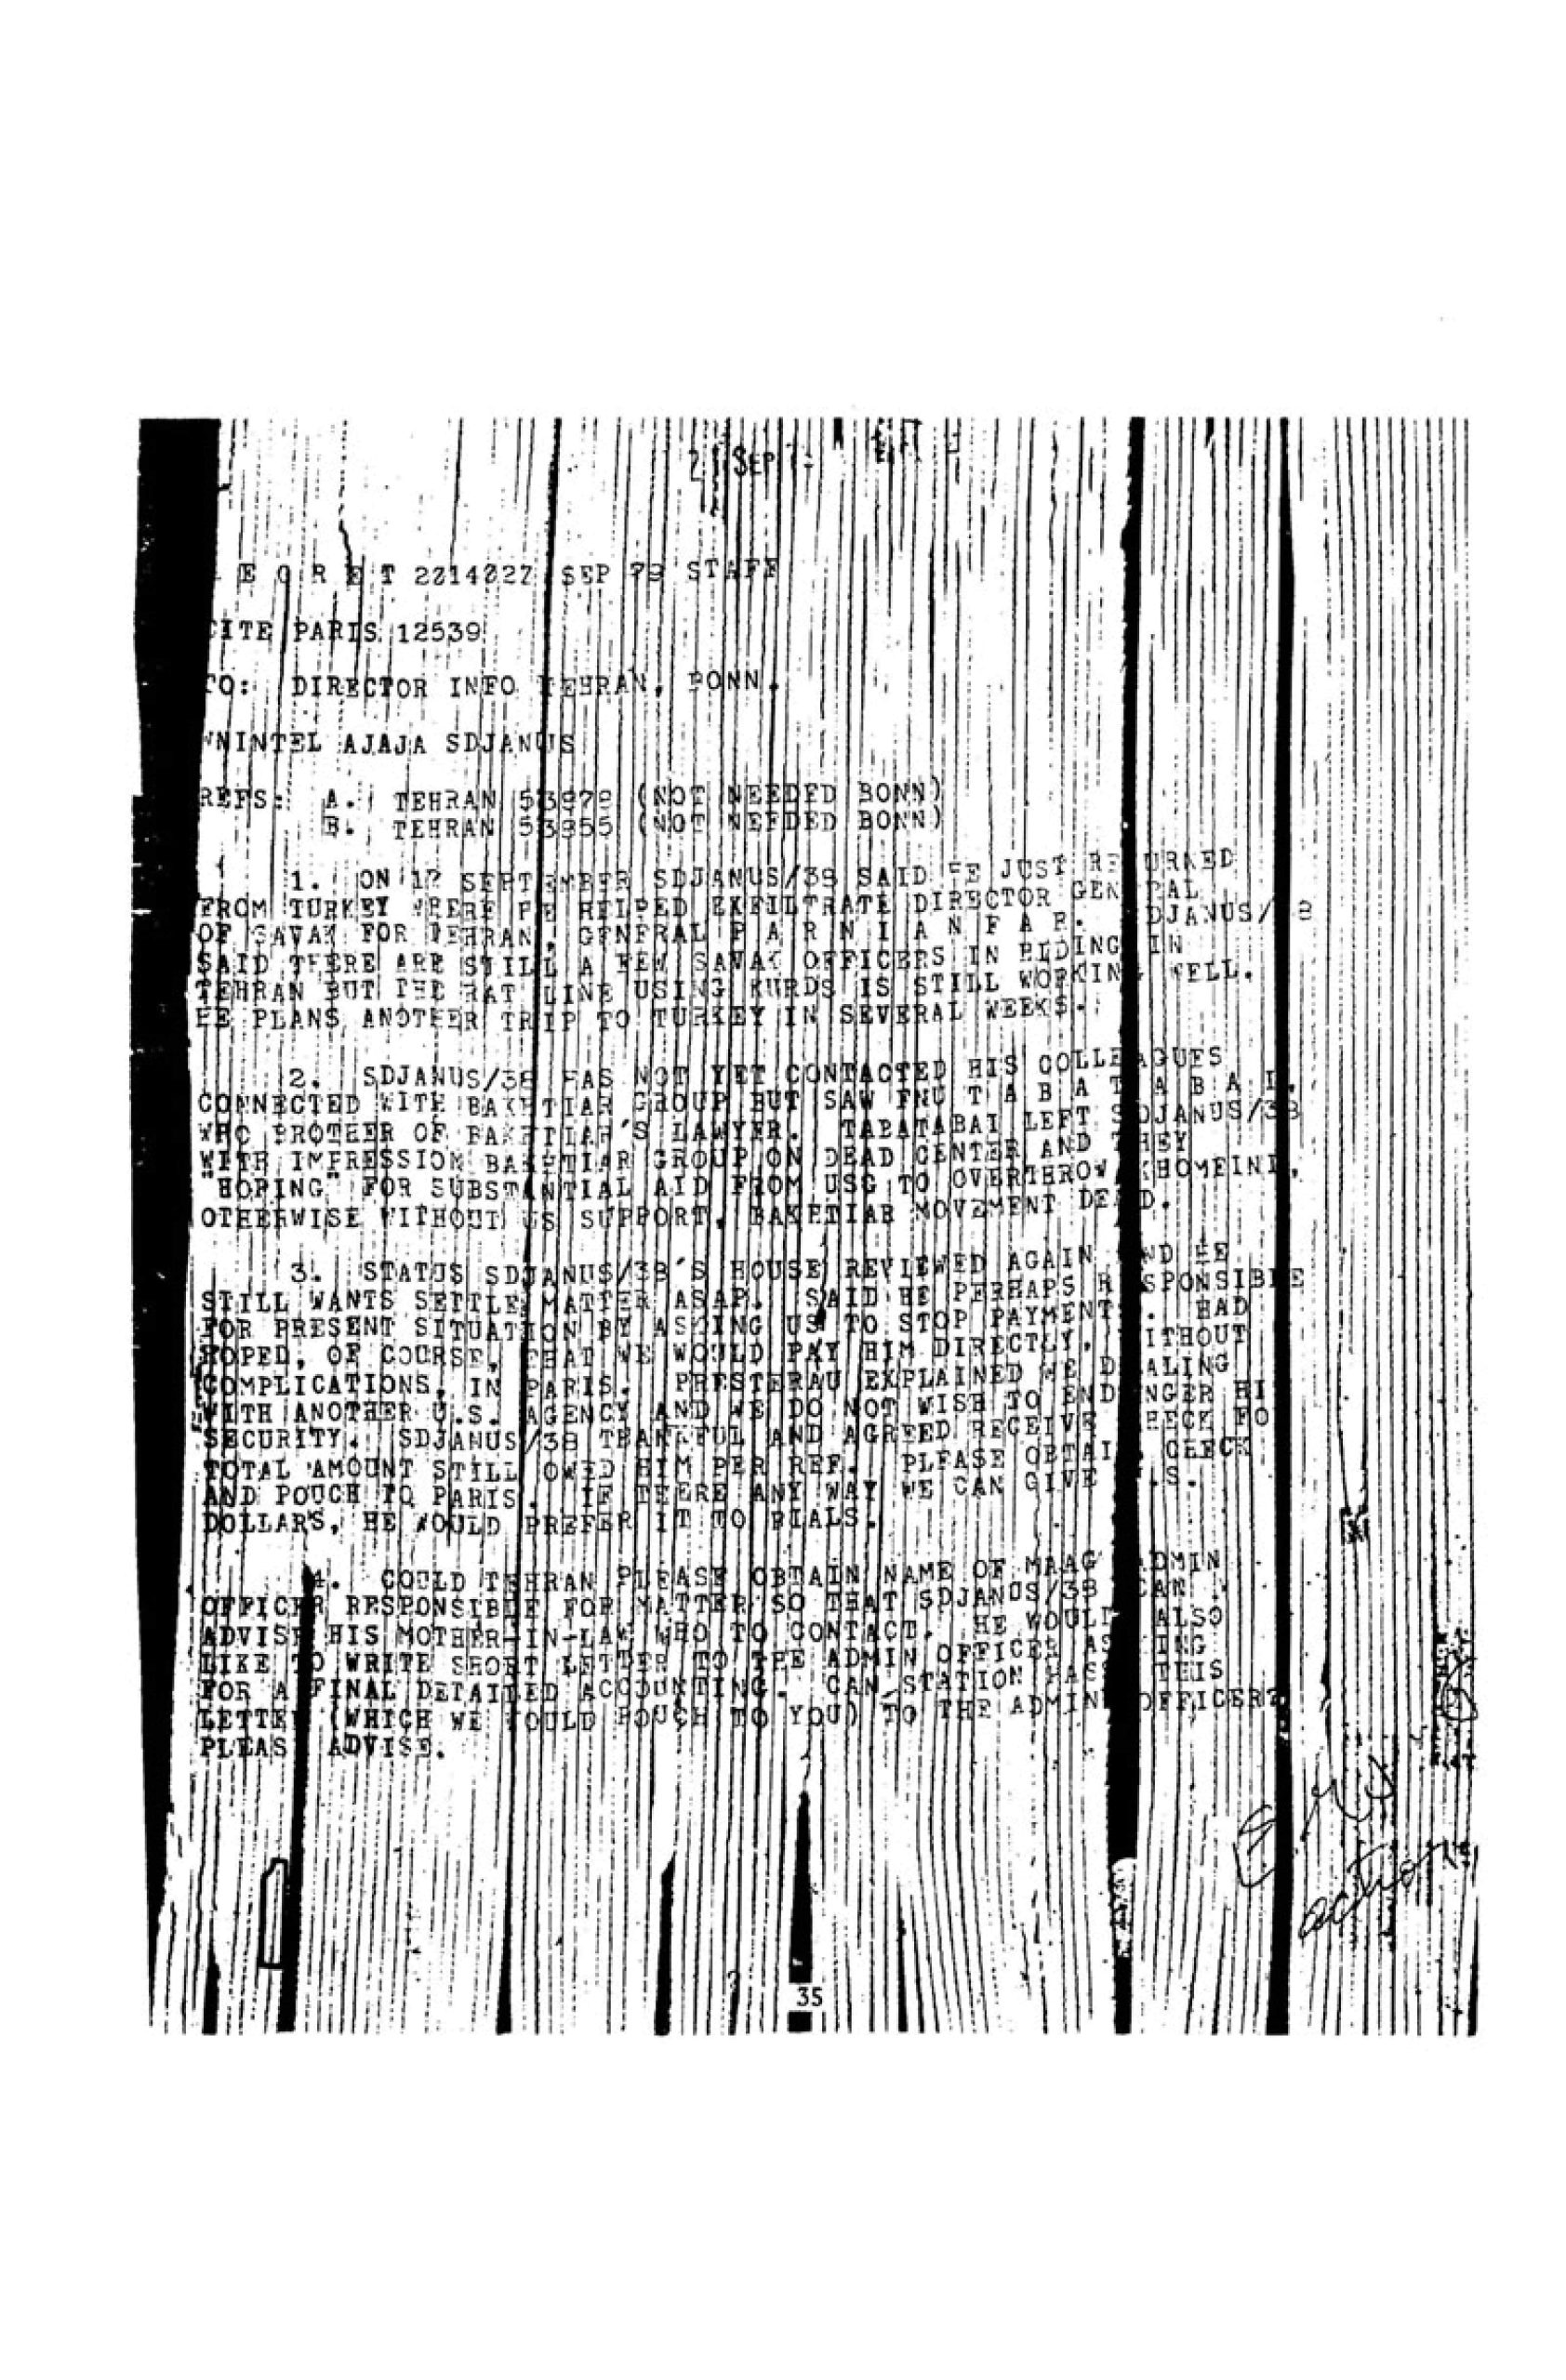 21 SEP
E C R E T 221422Z SEP 79 STAFF
CITE PARIS 12539
TO: DIRECTOR INFO TEHRAN, BONN.
WNINTEL AJAJA SDJANUS
REFS: A. TEHRAN 53979 (NOT NEEDED BONN)
B. TEHRAN 53955 (NOT NEEDED BONN)
1. ON SEPTEMBER SDJANUS/38 SAID HE JUST RETURNED
FROM TURKEY WHERE HE HELPED EXFILTRATE DIRECTOR GENERAL
OF SAVAK FOR TEHRAN, GENERAL P A R N I A N F A R. SDJANUS/38
SAID THERE ARE STILL A FEW SAVAK OFFICERS IN HIDING IN
TEHRAN BUT THE RAT LINE USING KURDS IS STILL WORKING WELL.
HE PLANS ANOTHER TRIP TO TURKEY IN SEVERAL WEEKS.
2. SDJANUS/38 HAS NOT YET CONTACTED HIS COLLEAGUES
CONNECTED WITH BAKHTIAR GROUP BUT SAW FNU T A B A T A B A I,
WHO BROTHER OF BAKHTIAR'S LAWYER. TABATABAI LEFT SDJANUS/38
WITH IMPRESSION BAKHTIAR GROUP ON DEAD CENTER AND THEY
"HOPING" FOR SUBSTANTIAL AID FROM USG TO OVERTHROW KHOMEINI,
OTHERWISE WITHOUT US SUPPORT, BAKHTIAR MOVEMENT DEAD.
3. STATUS SDJANUS/38'S HOUSE REVIEWED AGAIN AND HE
STILL WANTS SETTLE MATTER ASAP. SAID HE PERHAPS RESPONSIBLE
FOR PRESENT SITUATION BY ASKING US TO STOP PAYMENTS. HAD
HOPED, OF COURSE, THAT WE WOULD PAY HIM DIRECTLY, WITHOUT
COMPLICATIONS, IN PARIS. PRESTERAU EXPLAINED WE DEALING
WITH ANOTHER U.S. AGENCY AND WE DO NOT WISH TO ENDANGER HI
SECURITY. SDJANUS/38 THANKFUL AND AGREED RECEIVE CHECK FO
TOTAL AMOUNT STILL OWED HIM PER REF. PLEASE OBTAIN CHECK
AND POUCH TO PARIS. IF THERE ANY WAY WE CAN GIVE U.S.
DOLLARS, HE WOULD PREFER IT TO RIALS.
4. COULD TEHRAN PLEASE OBTAIN NAME OF MAAG ADMIN
OFFICER RESPONSIBLE FOR MATTER SO THAT SDJANUS/38 CAN
ADVISE HIS MOTHER-IN-LAW WHO TO CONTACT. HE WOULD ALSO
LIKE TO WRITE SHORT LETTER TO THE ADMIN OFFICER ASKING
FOR A FINAL DETAILED ACCOUNTING. CAN STATION PASS THIS
LETTER (WHICH WE WOULD POUCH TO YOU) TO THE ADMIN OFFICER?
PLEASE ADVISE.
action
35